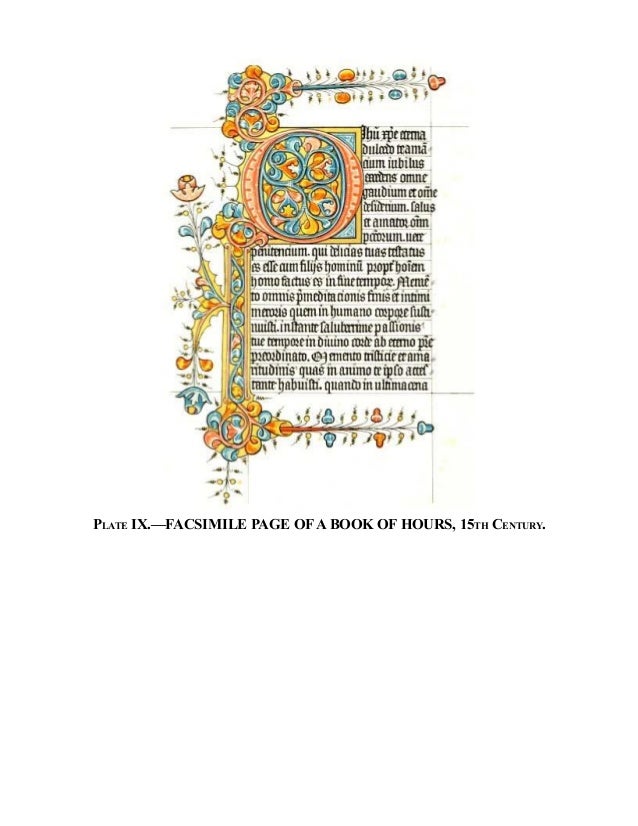 O Ihū xp̄e eterna
dulcedo te amā
cium iubilus
excedens omne
gaudium et om̄e
desiderium. salus
et amator om̄
pc̄torum. uere
penitencium. qui delicias tuas testatus
es esse cum filijs hominū propt̄ hoīem
homo factus es in fine tempoꝝ. Memē
to omnis p̄meditacionis finis et intimi
meroris quem in humano corpore susti
nuisti. instante saluberrime passionis
tue tempore in diuino corde ab eterno
preordinato. Memento tristicie et ama
ritudinis quas in animo te ipso actes
tante habuisti. quando in ultima cena
PLATE IX.—FACSIMILE PAGE OF A BOOK OF HOURS, 15TH CENTURY.